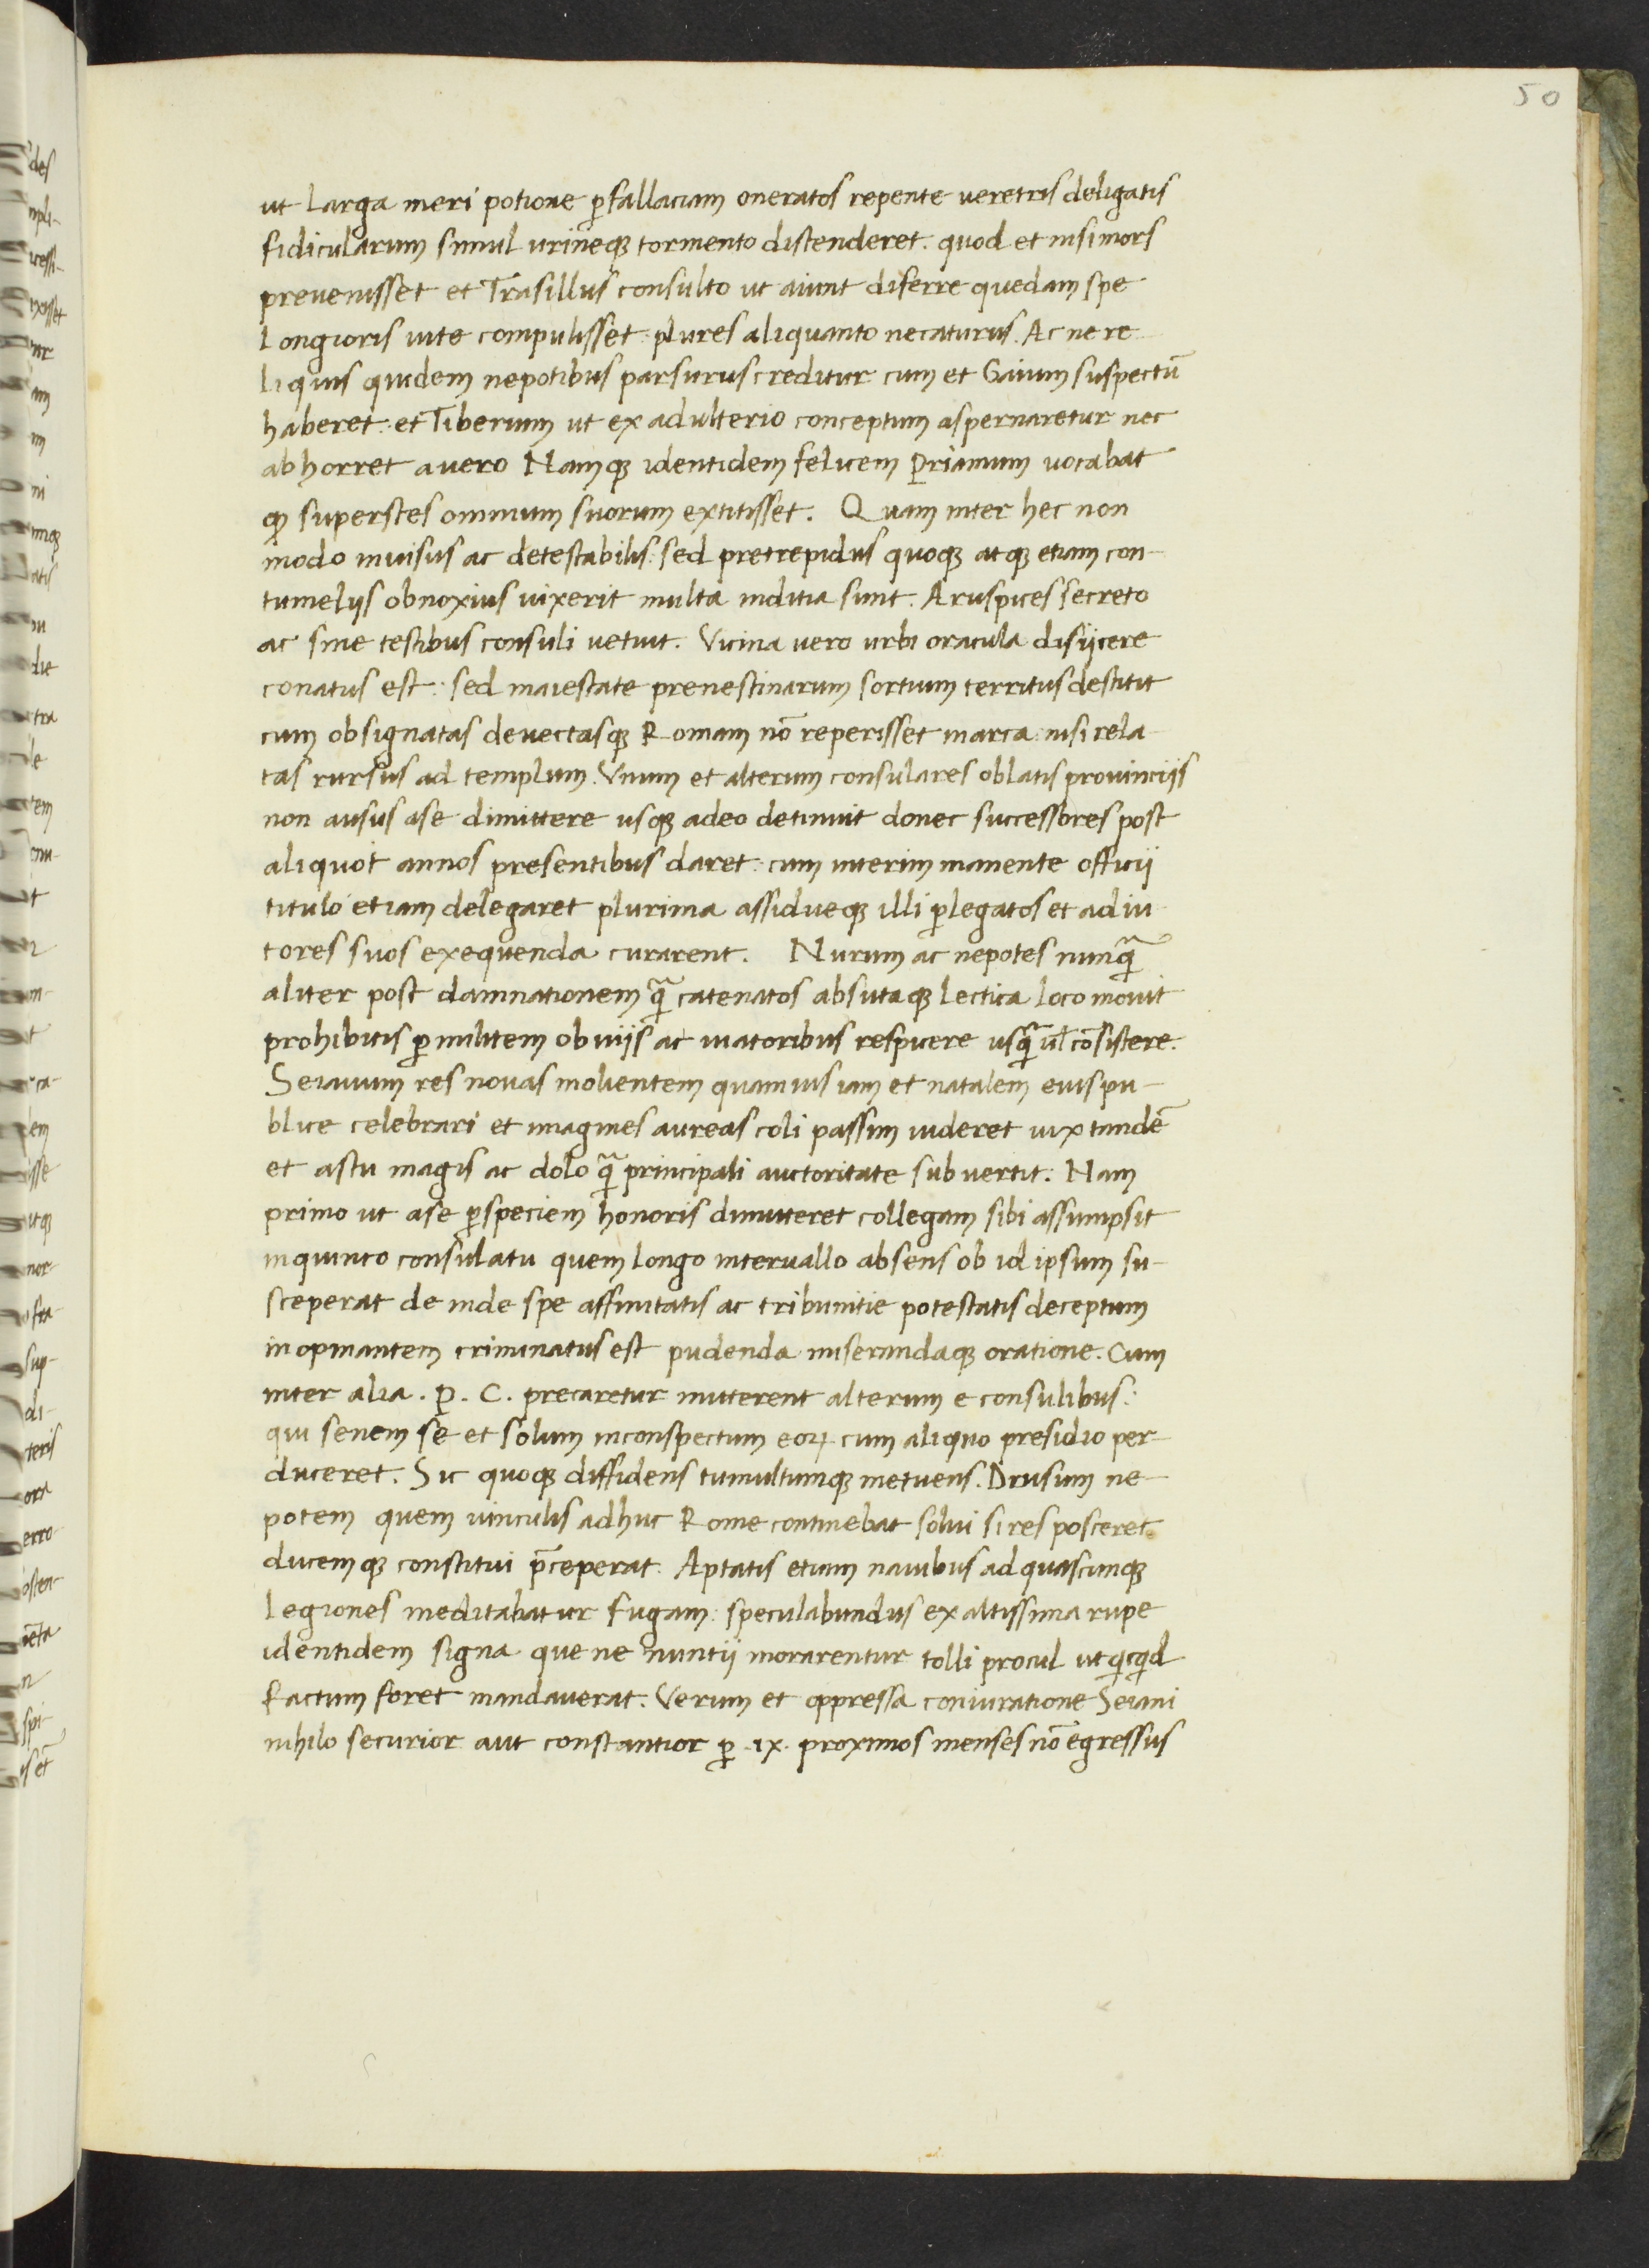 50
ut larga meri potione ꝑ fallaciam oneratos repente ueretris deligatis
fidicularum simul urineqꝫ tormento distenderet. quod et nisi mors
preuenisset et Trasillus consulto ut aiunt diferre quedam spe
longioris uite compulisset: plures aliquanto necaturus. Ac ne re
liquis quidem nepotibus parsurus creditur cum et Gaium suspectū
haberet: et Tiberium ut ex adulterio conceptum aspernaretur nec
abhorret a uero Namqꝫ identidem felicem Priamum uocabat
ꝙ superstes omnium suorum extitisset. Quam inter hec non
modo inuisus ac detestabilis: sed pretrepidus quoqꝫ atqꝫ etiam con-
tumelijs obnoxius uixerit multa inditia sunt. Aruspices secreto
ac sine testibus consuli uetuit. Vicina uero urbi oracula disijcere
conatus est: sed maiestate prenestinarum sortium territus destitit
cum obsignatas deuectasqꝫ Romam nō reperisset in arca: nisi rela
tas rursus ad templum. Vnum et alterum consulares oblatis prouincijs
non ausus a se dimittere usqꝫ adeo detinuit donec successores post
aliquot annos presentibus daret: cum interim manente officij
titulo etiam delegaret plurima assidueqꝫ illi ꝑ legatos et adiu
tores suos exequenda curarent. Nurum ac nepotes nunq̄
aliter post damnationem q̄ catenatos absutaqꝫ lectica loco mouit
prohibitis ꝑ militem obuijs ac uiatoribus respicere usq̄ ul̄ cōsistere.
Seianum res nouas molientem quamuis iam et natalem eius pu-
blice celebrari et imagines aureas coli passim uideret uix tandē
et astu magis ac dolo q̄ principali auctoritate subuertit: Nam
primo ut a se ꝑ speciem honoris dimitteret collegam sibi assumpsit
in quinto consulatu quem longo interuallo absens ob id ipsum su-
sceperat de inde spe affinitatis ac tribunitie potestatis deceptum
inopinantem criminatus est pudenda miserandaqꝫ oratione. Cum
inter alia. P. C. precaretur mitterent alterum e consulibus:
qui senem se et solum in conspectum eoꝝ cum aliquo presidio per-
duceret. Sic quoqꝫ diffidens tumultumqꝫ metuens. Drusum ne-
potem quem uinculis adhuc Rome continebat solui si res posceret
ducemqꝫ constitui p̄ceperat. Aptatis etiam nauibus ad quascunqꝫ
legiones meditabatur fugam: speculabundus ex altissima rupe
identidem signa que ne nuntij morarentur tolli procul ut qͥcqͥd
factum foret mandauerat. Verum et oppressa coniuratione Seiani
nihilo securior aut constantior ꝑ .ix. proximos menses nō egressus